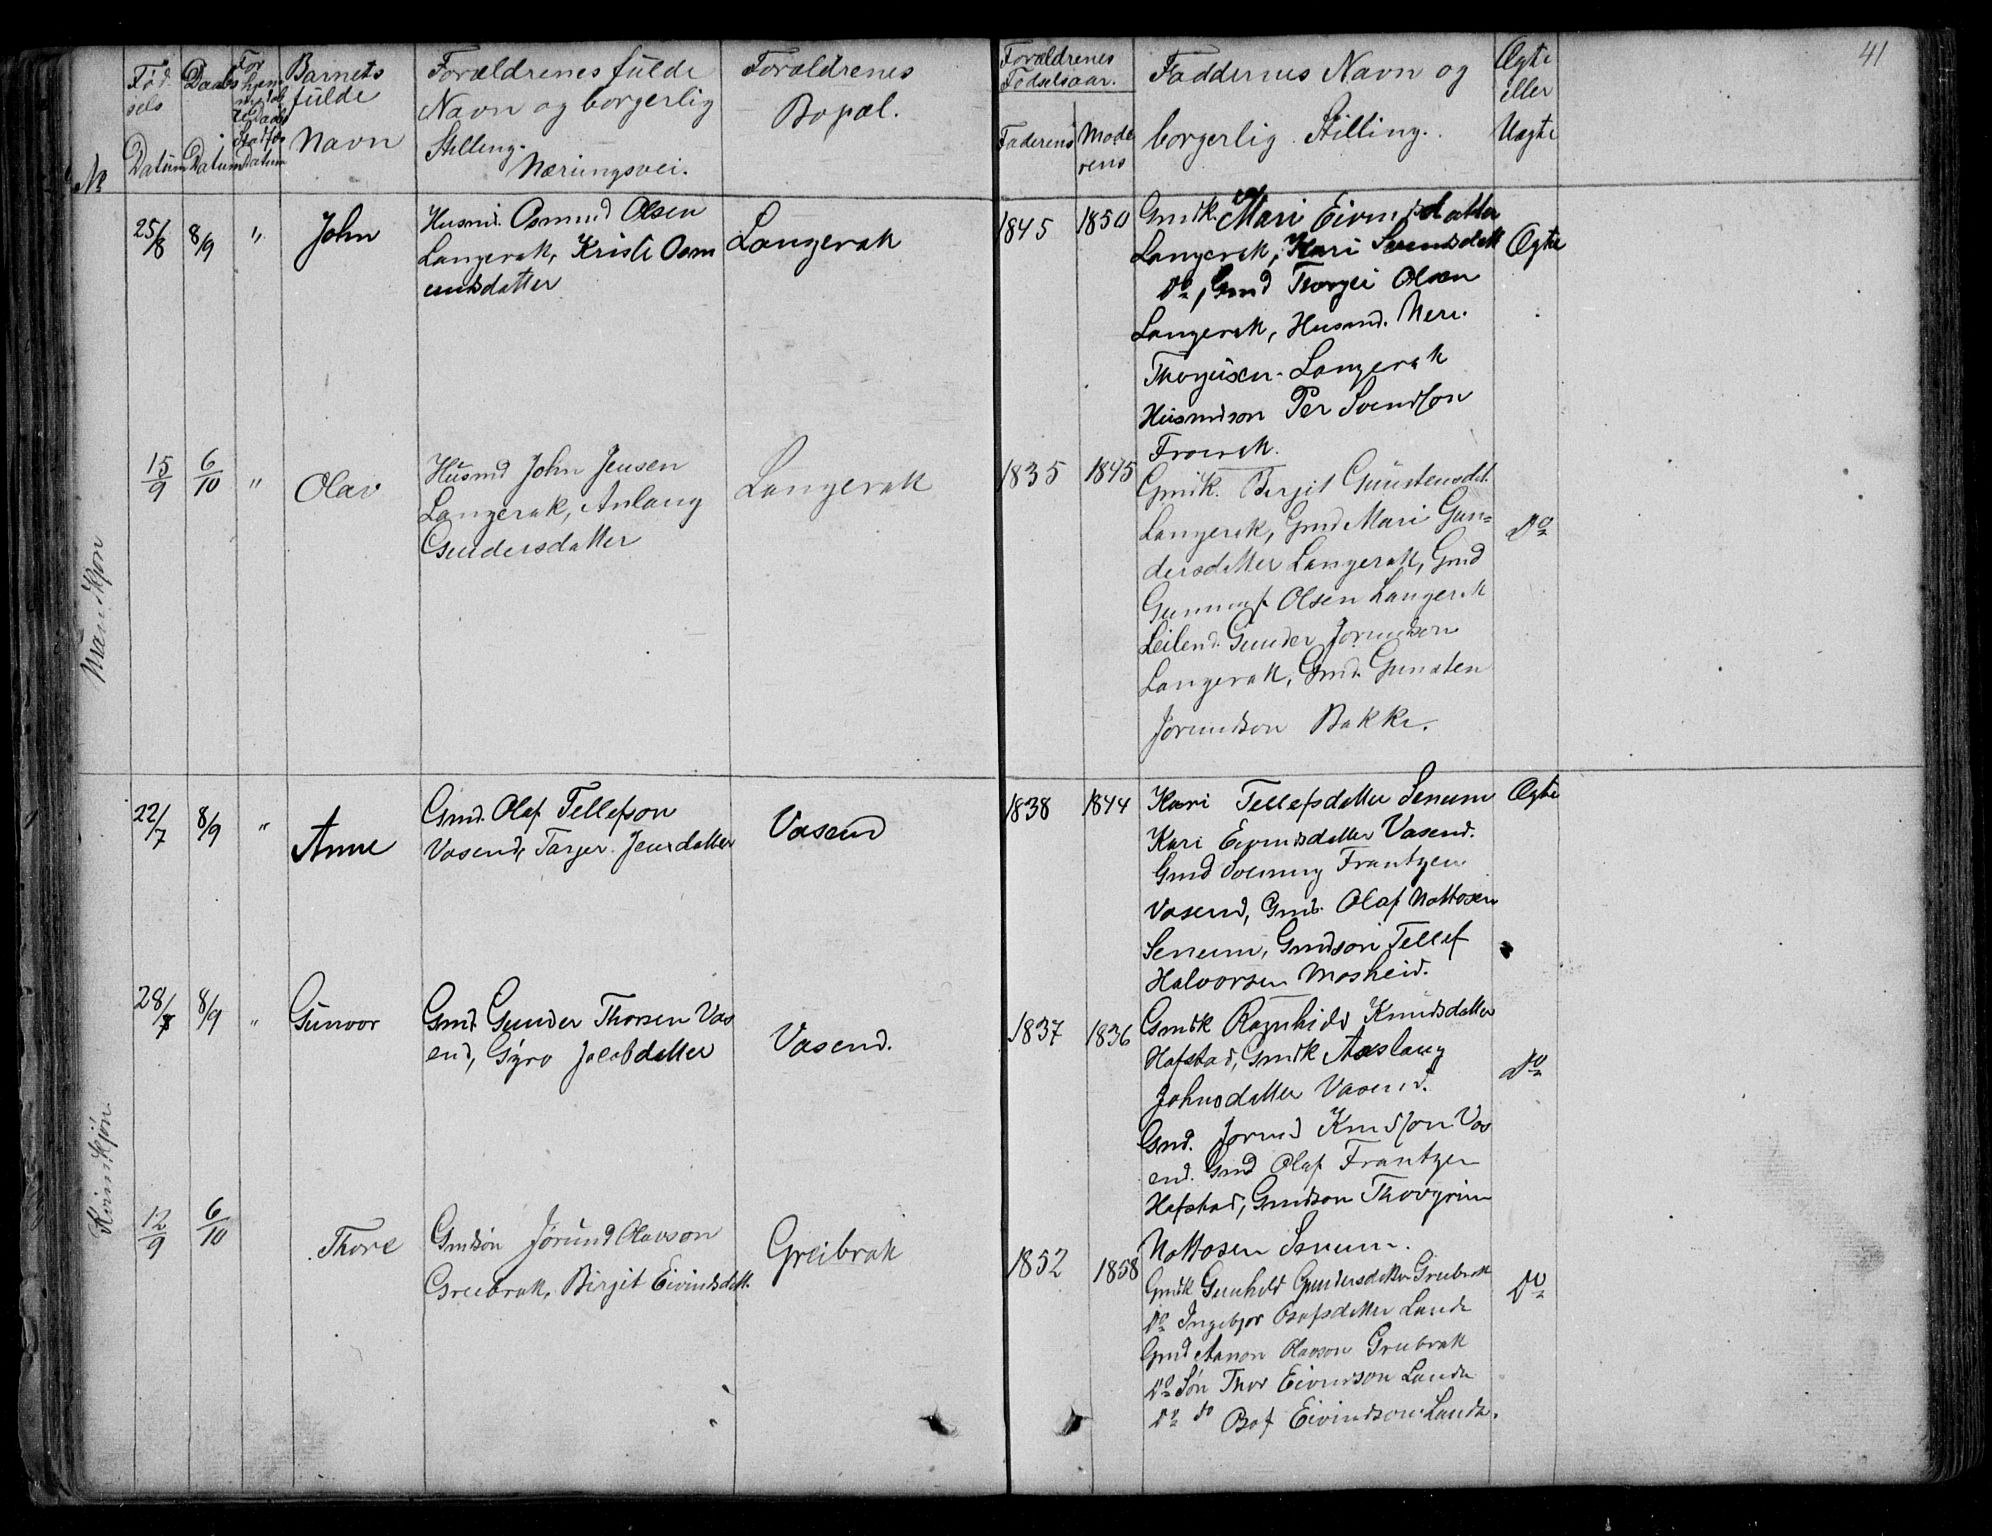 41
Fød
sels
Datum
Daabs
Datum
For
hjem
Datum
Barnets
fulde
Navn
Forældrenes fulde
Navn og borgerlig
Stilling.
Næringsvei.
Forældrenes
Bopæl.
Forældrenes
Fødselsaar.
Faderens
Mode
rens
Faddernes Navn og
borgerlig Stilling.
Ægte
eller
Uægte
No
Mandkjøn
25/8 8/9 " John
Husmd. Osmund Olsen
Langerak, Kristi Osm
undsdatter
Langerak
1845 1850
Gmdk. Mari Eivindsdatter
Langerak, Kari Svendsdatt
Do, Gmd Thorgei Olsen
Langerak, Husmd. Neri
Thorjusen Langerak
Husmdson Per Svendson
Froirak.
Ægte
15/9 6/10 " Olav
Husmd John Jensen
Langerak, Anlaug
Gundersdatter
Langerak
1835 1845
Gmdk. Birgit Gunstensdt.
Langerak, Gmd Mari Gun-
dersdatter Langerak, Gmd
Gunnuf Olsen Langerak
Leilend. Gunder Jorundson
Langerak, Gmd. Gunsten
Jorundson Bakke.
Do
Kvindkjøn
22/7 8/9 " Anne
Gmd. Olaf Tellefson
Vasend, Targer. Jensdatter
Vasend
1838 1844
Kari Tellefsdatter Senum
Kari Eivindsdatter Vasend.
Gmd Sveinung Frantzen
Vasend, Gmd. Olaf Nottosen
Senum, Gmdson Tellef
Halvorsen Mosheid.
Ægte
28/7 8/9 " Gunvor
Gmd. Gunder Thorsen Vas
end, Gyro Jacobdatter
Vasend.
1837 1836
Gmdk Ragnhild Knudsdatter
Hafstad, Gmdk Aaslaug
Johnsdatter Vasend.
Gmd. Jorund Knudson Vas
end. Gmd Olaf Frantzen
Hafstad, Gmdson Thovgrim
Nottosen Senum.
Do
12/9 6/10 Thore
Gmdsøn Jørund Olavson
Greibrak, Birgit Eivindsdatt.
Greibrak
1852 1858
Gmdk Gunhild Gundersdatter Greibrak
Do Ingebjor Osufsdatter Lande
Gmd Aanon Olavson Greibrak
Do Søn Thor Eivindson Lande
Do do Osof Eivindson Lande.
Do